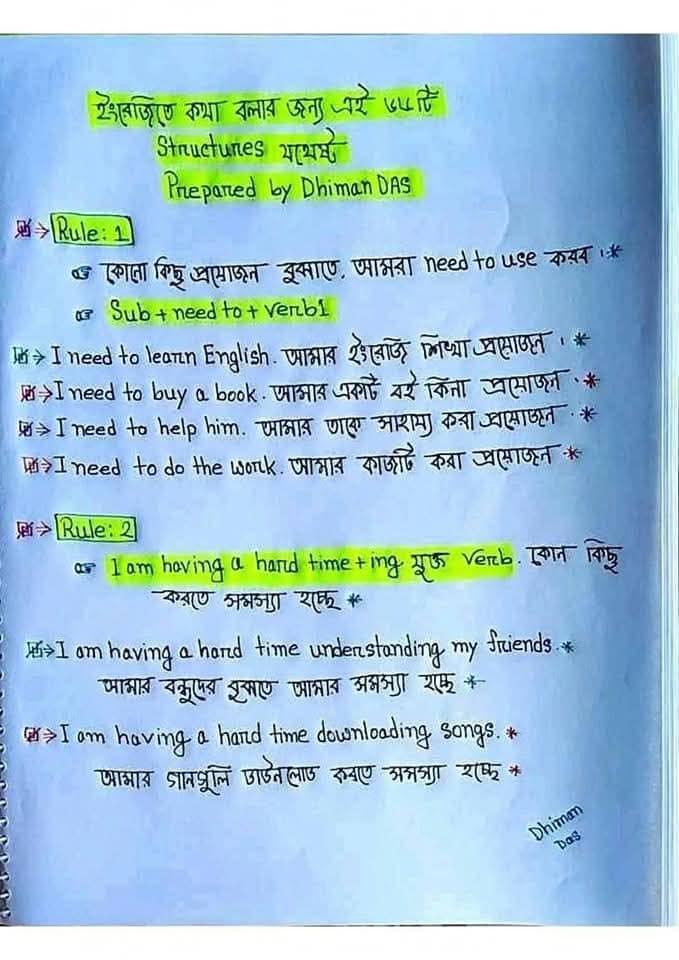 ইংরেজিতে কথা বলার জন্য এই ৬৫টি
Structures যথেষ্ট
Prepared by Dhiman DAS
Rule: 1
কোনো কিছু প্রয়োজন বুঝাতে, আমরা need to use করব ।*
Sub + need to + verb1
→ I need to learn English. আমার ইংরেজি শিখা প্রয়োজন । *
→ I need to buy a book. আমার একটি বই কিনা প্রয়োজন . *
→ I need to help him. আমার তাকে সাহায্য করা প্রয়োজন . *
→ I need to do the work. আমার কাজটি করা প্রয়োজন . *
→ Rule: 2
I am having a hard time + ing যুক্ত verb. কোন কিছু
করতে সমস্যা হচ্ছে *
→ I am having a hard time understanding my friends. *
আমার বন্ধুদের বুঝতে আমার সমস্যা হচ্ছে *
→ I am having a hard time downloading songs. *
আমার গানগুলি ডাউনলোড করতে সমস্যা হচ্ছে *
Dhiman
Das